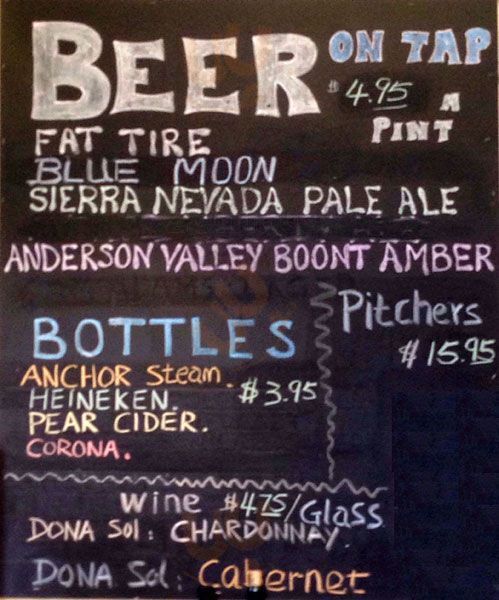 BEER ON TAP
$4.95 A
PINT
FAT TIRE
BLUE MOON
SIERRA NEVADA PALE ALE
ANDERSON VALLEY BOONT AMBER
Pitchers
$15.95
BOTTLES
ANCHOR Steam.
HEINEKEN. $3.95
PEAR CIDER.
CORONA.
Wine $4.75/Glass
DONA Sol: CHARDONNAY
DONA Sol: Cabernet